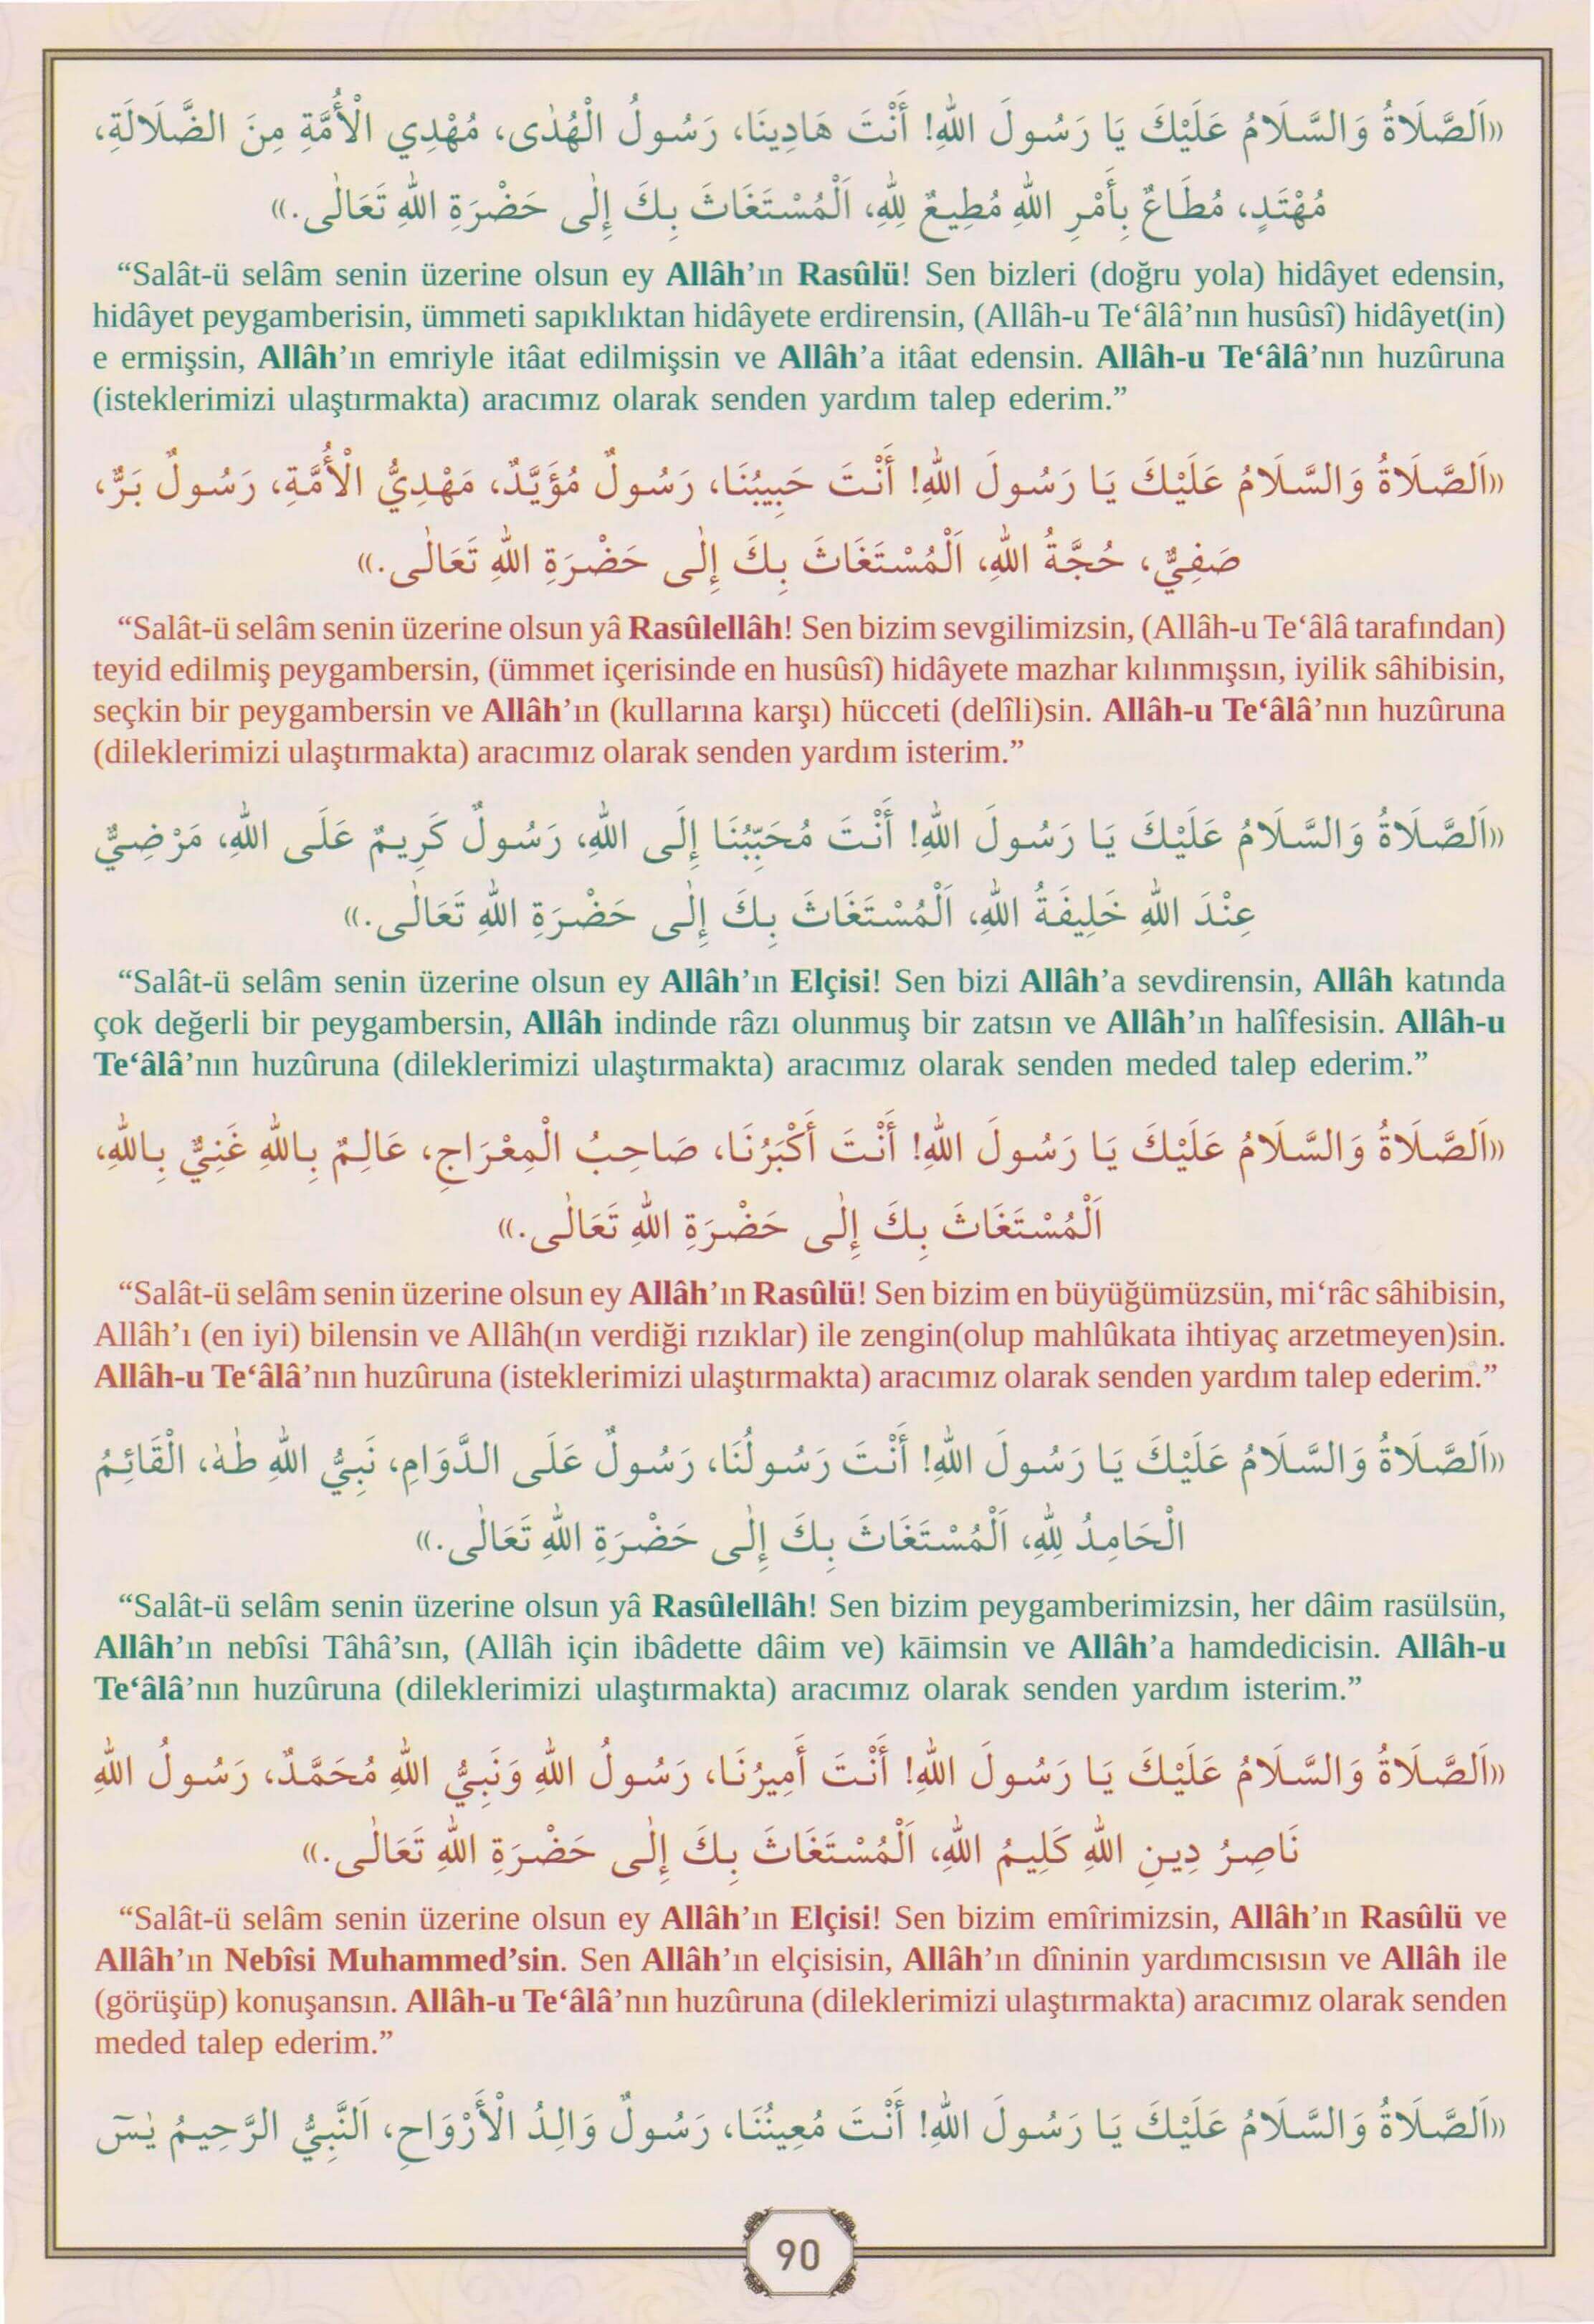 «اَلصَّلَاةُ وَالسَّلَامُ عَلَيْكَ يَا رَسُولَ اللهِ! أَنْتَ هَادِينَا، رَسُولُ الْهُدٰى، مُهْدِي الْأُمَّةِ مِنَ الضَّلَالَةِ،
مُهْتَدٍ، مُطَاعٌ بِأَمْرِ اللهِ مُطِيعٌ لِلهِ، اَلْمُسْتَغَاثَ بِكَ إِلٰى حَضْرَةِ اللهِ تَعَالٰى.»
“Salât-ü selâm senin üzerine olsun ey Allâh’ın Rasûlü! Sen bizleri (doğru yola) hidâyet edensin,
hidâyet peygamberisin, ümmeti sapıklıktan hidâyete erdirensin, (Allâh-u Te‘âlâ’nın husûsî) hidâyet(in)
e ermişsin, Allâh’ın emriyle itâat edilmişsin ve Allâh’a itâat edensin. Allâh-u Te‘âlâ’nın huzûruna
(isteklerimizi ulaştırmakta) aracımız olarak senden yardım talep ederim.”
«اَلصَّلَاةُ وَالسَّلَامُ عَلَيْكَ يَا رَسُولَ اللهِ! أَنْتَ حَبِيبُنَا، رَسُولٌ مُؤَيَّدٌ، مَهْدِيُّ الْأُمَّةِ، رَسُولٌ بَرٌّ،
صَفِيٌّ، حُجَّةُ اللهِ، اَلْمُسْتَغَاثَ بِكَ إِلٰى حَضْرَةِ اللهِ تَعَالٰى.»
“Salât-ü selâm senin üzerine olsun yâ Rasûlellâh! Sen bizim sevgilimizsin, (Allâh-u Te‘âlâ tarafından)
teyid edilmiş peygambersin, (ümmet içerisinde en husûsî) hidâyete mazhar kılınmışsın, iyilik sâhibisin,
seçkin bir peygambersin ve Allâh’ın (kullarına karşı) hücceti (delîli)sin. Allâh-u Te‘âlâ’nın huzûruna
(dileklerimizi ulaştırmakta) aracımız olarak senden yardım isterim.”
«اَلصَّلَاةُ وَالسَّلَامُ عَلَيْكَ يَا رَسُولَ اللهِ! أَنْتَ مُحَبِّبُنَا إِلَى اللهِ، رَسُولٌ كَرِيمٌ عَلَى اللهِ، مَرْضِيٌّ
عِنْدَ اللهِ خَلِيفَةُ اللهِ، اَلْمُسْتَغَاثَ بِكَ إِلٰى حَضْرَةِ اللهِ تَعَالٰى.»
“Salât-ü selâm senin üzerine olsun ey Allâh’ın Elçisi! Sen bizi Allâh’a sevdirensin, Allâh katında
çok değerli bir peygambersin, Allâh indinde râzı olunmuş bir zatsın ve Allâh’ın halîfesisin. Allâh-u
Te‘âlâ’nın huzûruna (dileklerimizi ulaştırmakta) aracımız olarak senden meded talep ederim.”
«اَلصَّلَاةُ وَالسَّلَامُ عَلَيْكَ يَا رَسُولَ اللهِ! أَنْتَ أَكْبَرُنَا، صَاحِبُ الْمِعْرَاجِ، عَالِمٌ بِاللهِ غَنِيٌّ بِاللهِ،
اَلْمُسْتَغَاثَ بِكَ إِلٰى حَضْرَةِ اللهِ تَعَالٰى.»
“Salât-ü selâm senin üzerine olsun ey Allâh’ın Rasûlü! Sen bizim en büyüğümüzsün, mi‘râc sâhibisin,
Allâh’ı (en iyi) bilensin ve Allâh(ın verdiği rızıklar) ile zengin(olup mahlûkata ihtiyaç arzetmeyen)sin.
Allâh-u Te‘âlâ’nın huzûruna (isteklerimizi ulaştırmakta) aracımız olarak senden yardım talep ederim.”
«اَلصَّلَاةُ وَالسَّلَامُ عَلَيْكَ يَا رَسُولَ اللهِ! أَنْتَ رَسُولُنَا، رَسُولٌ عَلَى الدَّوَامِ، نَبِيُّ اللهِ طٰهٰ، الْقَائِمُ
الْحَامِدُ لِلهِ، اَلْمُسْتَغَاثَ بِكَ إِلٰى حَضْرَةِ اللهِ تَعَالٰى.»
“Salât-ü selâm senin üzerine olsun yâ Rasûlellâh! Sen bizim peygamberimizsin, her dâim rasülsün,
Allâh’ın nebîsi Tâhâ’sın, (Allâh için ibâdette dâim ve) kāimsin ve Allâh’a hamdedicisin. Allâh-u
Te‘âlâ’nın huzûruna (dileklerimizi ulaştırmakta) aracımız olarak senden yardım isterim.”
«اَلصَّلَاةُ وَالسَّلَامُ عَلَيْكَ يَا رَسُولَ اللهِ! أَنْتَ أَمِيرُنَا، رَسُولُ اللهِ وَنَبِيُّ اللهِ مُحَمَّدٌ، رَسُولُ اللهِ
نَاصِرُ دِينِ اللهِ كَلِيمُ اللهِ، اَلْمُسْتَغَاثَ بِكَ إِلٰى حَضْرَةِ اللهِ تَعَالٰى.»
“Salât-ü selâm senin üzerine olsun ey Allâh’ın Elçisi! Sen bizim emîrimizsin, Allâh’ın Rasûlü ve
Allâh’ın Nebîsi Muhammed’sin. Sen Allâh’ın elçisisin, Allâh’ın dîninin yardımcısısın ve Allâh ile
(görüşüp) konuşansın. Allâh-u Te‘âlâ’nın huzûruna (dileklerimizi ulaştırmakta) aracımız olarak senden
meded talep ederim.”
«اَلصَّلَاةُ وَالسَّلَامُ عَلَيْكَ يَا رَسُولَ اللهِ! أَنْتَ مُعِينُنَا، رَسُولٌ وَالِدُ الْأَرْوَاحِ، اَلنَّبِيُّ الرَّحِيمُ يٰسٓ
90